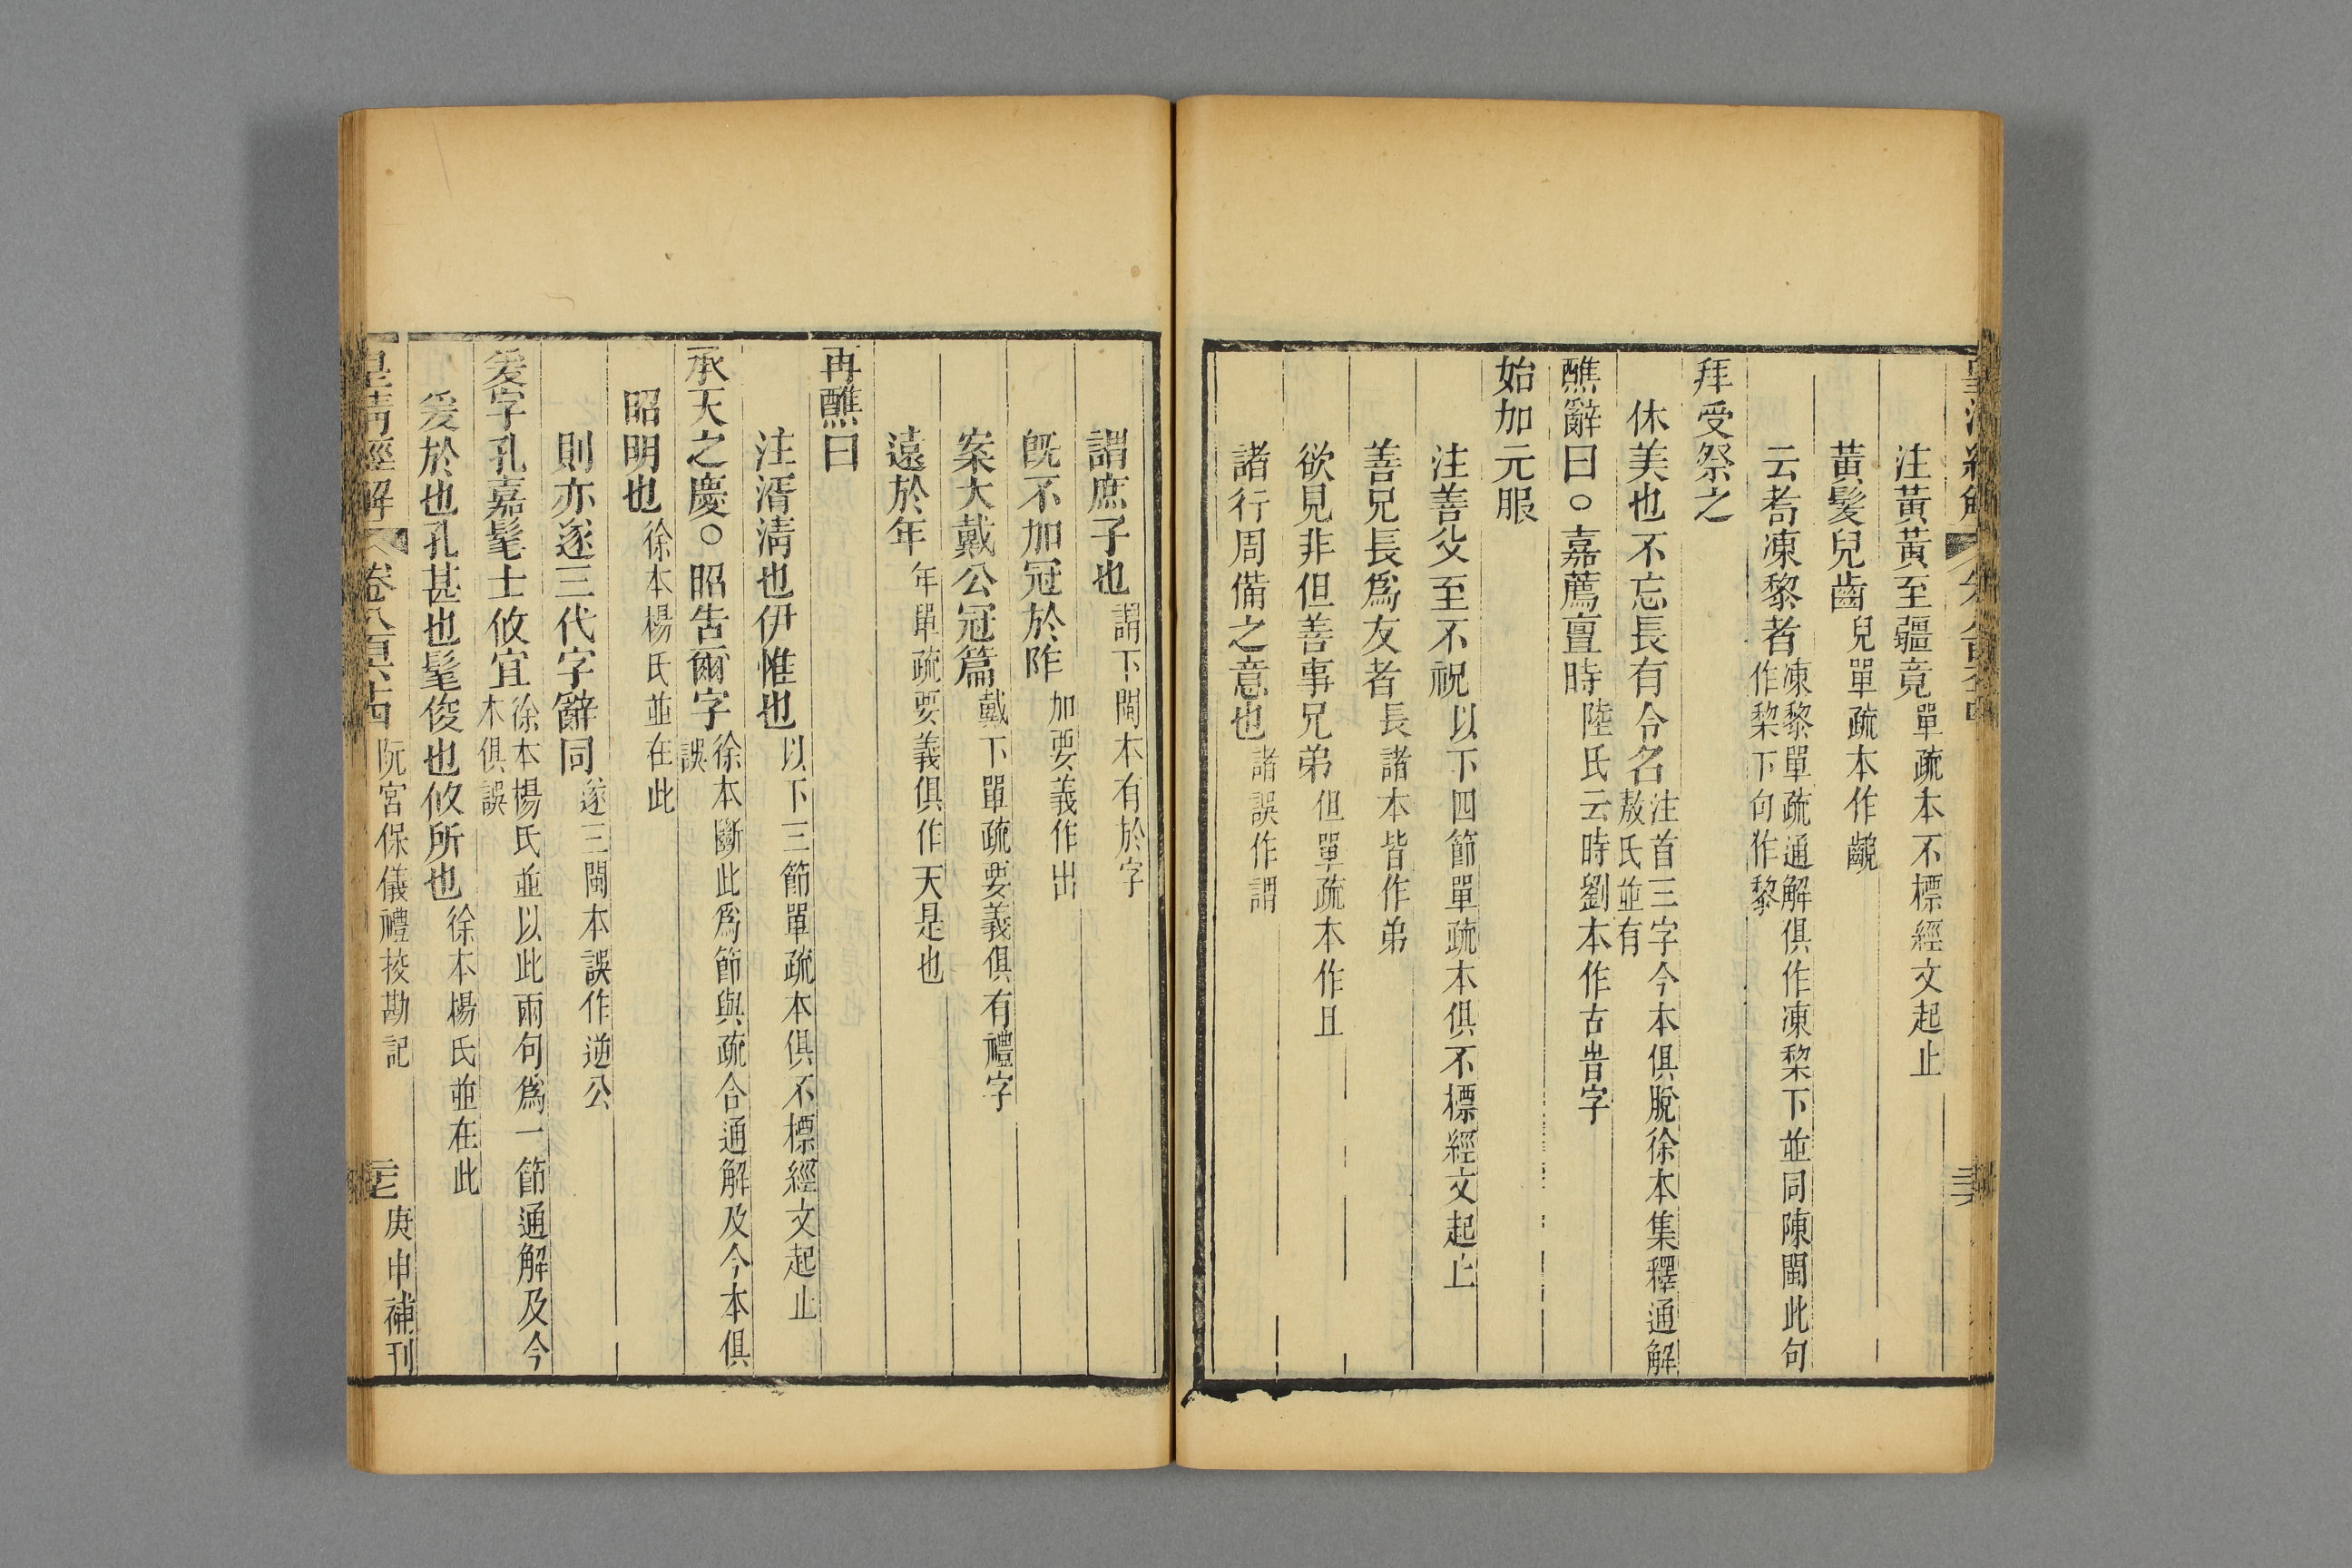 注黃黃至疆竟單疏本不標經文起止
黃髮兒齒兒單疏本作齯
云耇凍黎者凍黎單疏通解俱作凍棃下並同陳閩此句
作棃下句作黎
拜受祭之
休美也不忘長有令名注首三字今本俱脫徐本集釋通解
敖氏並有
醮辭曰○嘉薦亶時陸氏云時劉本作古旹字
始加元服
注善父至不祝以下四節單疏本俱不標經文起止
善兄長爲友者長諸本皆作弟
欲見非但善事兄弟但單疏本作且
諸行周備之意也諸誤作謂
謂庶子也謂下閩本有於字
旣不加冠於阼加要義作出
案大戴公冠篇戴下單疏要義俱有禮字
遠於年年單疏要義俱作天是也
再醮曰
注湑淸也伊惟也以下三節單疏本俱不標經文起止
承天之慶○昭告爾字徐本斷此爲節與疏合通解及今本俱
誤
昭明也徐本楊氏並在此
則亦遂三代字辭同遂三閩本誤作逆公
爰字孔嘉髦士攸宜徐本楊氏並以此兩句爲一節通解及今
本俱誤
爰於也孔甚也髦俊也攸所也徐本楊氏並在此
皇淸經解 卷八百六十四 阮宮保儀禮挍勘記 庚申補刊